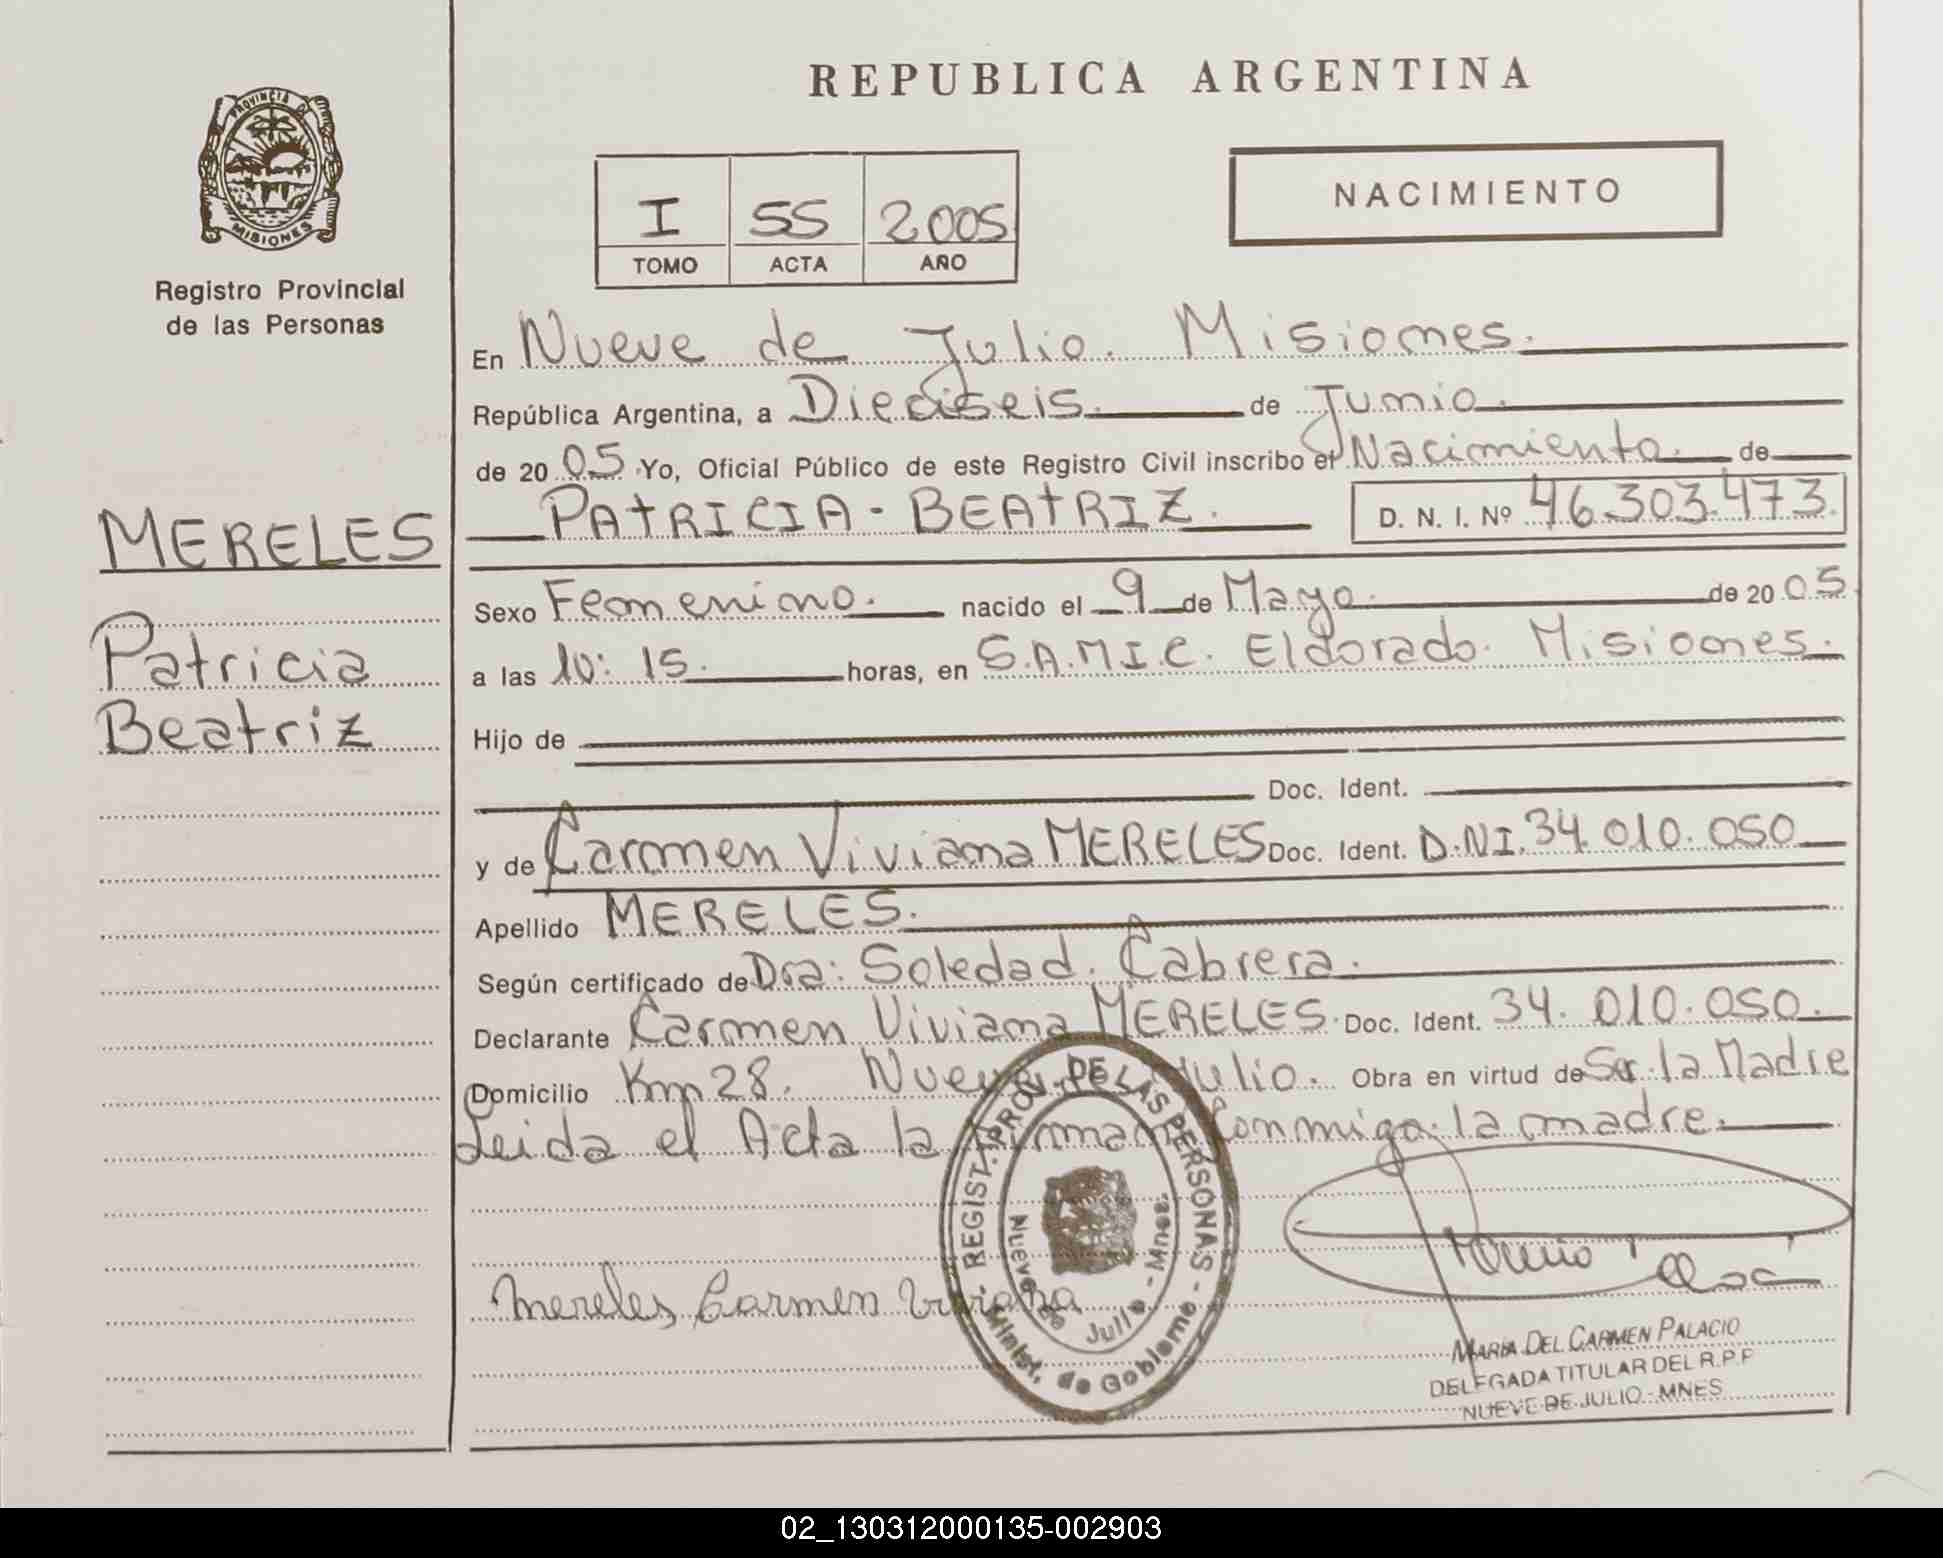 REPUBLICA ARGENTINA
PROVINCIA DE
MISIONES
Registro Provincial
de las Personas
I 55 2005
TOMO ACTA AÑO
NACIMIENTO
En Nueve de Julio. Misiones.
República Argentina, a Dieciseis. de Junio.
de 20 05 Yo, Oficial Público de este Registro Civil inscribo el Nacimiento. de
MERELES
Patricia
Beatriz
PATRICIA - BEATRIZ. D. N. I. Nº 46.303.473.
Sexo Femenino. nacido el 9 de Mayo. de 20 05
a las 10: 15. horas, en S.A.M.I.C. Eldorado. Misiones.
Hijo de
Doc. Ident.
y de Carmen Viviana MERELES Doc. Ident. D.NI. 34.010.050
Apellido MERELES.
Según certificado de Dra: Soledad. Cabrera.
Declarante Carmen Viviana MERELES. Doc. Ident. 34.010.050.
Domicilio Km 28. Nueve de Julio. Obra en virtud de Ser la Madre
Leida el Acta la firman Conmigo: la madre.
REGIST. PROV. DE LAS PERSONAS - Minist. de Gobierno -
Nueve de Julio - Mnes.
Mereles Carmen Viviana
MARIA DEL CARMEN PALACIO
DELEGADA TITULAR DEL R.P.P
NUEVE DE JULIO - MNES
02_130312000135-002903